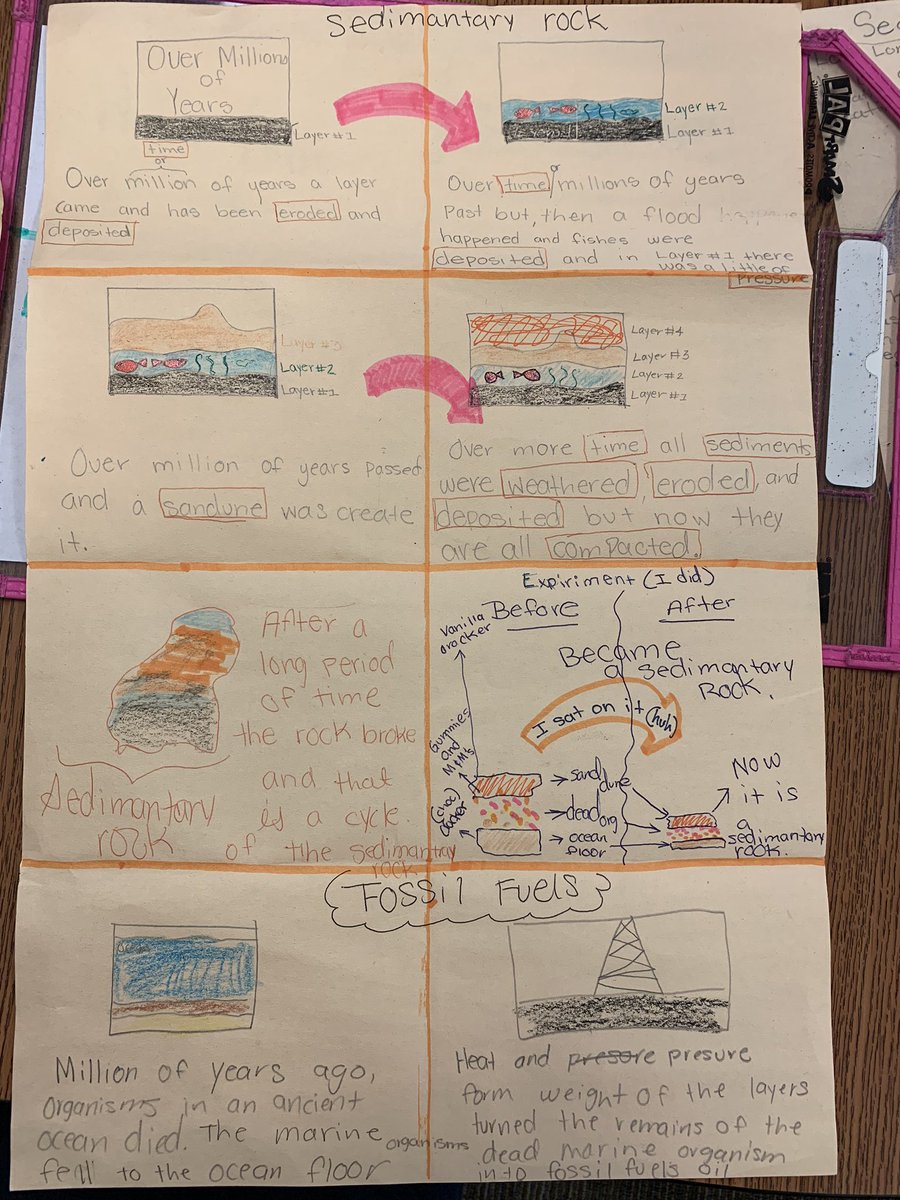 Sedimantary rock
Over Millions
of
Years
Layer #1
time
or
Over million of years a layer
came and has been eroded and
deposited
Layer #2
Layer #1
or
Over time / millions of years
past but, then a flood happene
happened and fishes were
deposited and in Layer #1 there
was a little of
pressure
Layer #3
Layer #2
Layer #1
Over million of years passed
and a sandune was create
it.
Layer #4
Layer #3
Layer #2
Layer #1
Over more time all sediments
were weathered, eroded, and
deposited but now they
are all compacted.
Sedimantary
rock
After a
long period
of time
the rock broke
and that
is a cycle.
of the sedimantray
rock
Expiriment (I did)
Before
After
Vanilla
cracker
Gummies
and
M+M's
(choc)
Became
a sedimantary
Rock.
I sat on it (huh)
sand dune
dead org
ocean
floor
Now
it is
a
sedimantary
rock.
Fossil Fuels
Million of years ago,
organisms in an ancient
ocean died. The marine organisms
fell to the ocean floor
Heat and presore presure
form weight of the layers
turned the remains of the
dead marine organism
into fossil fuels oil